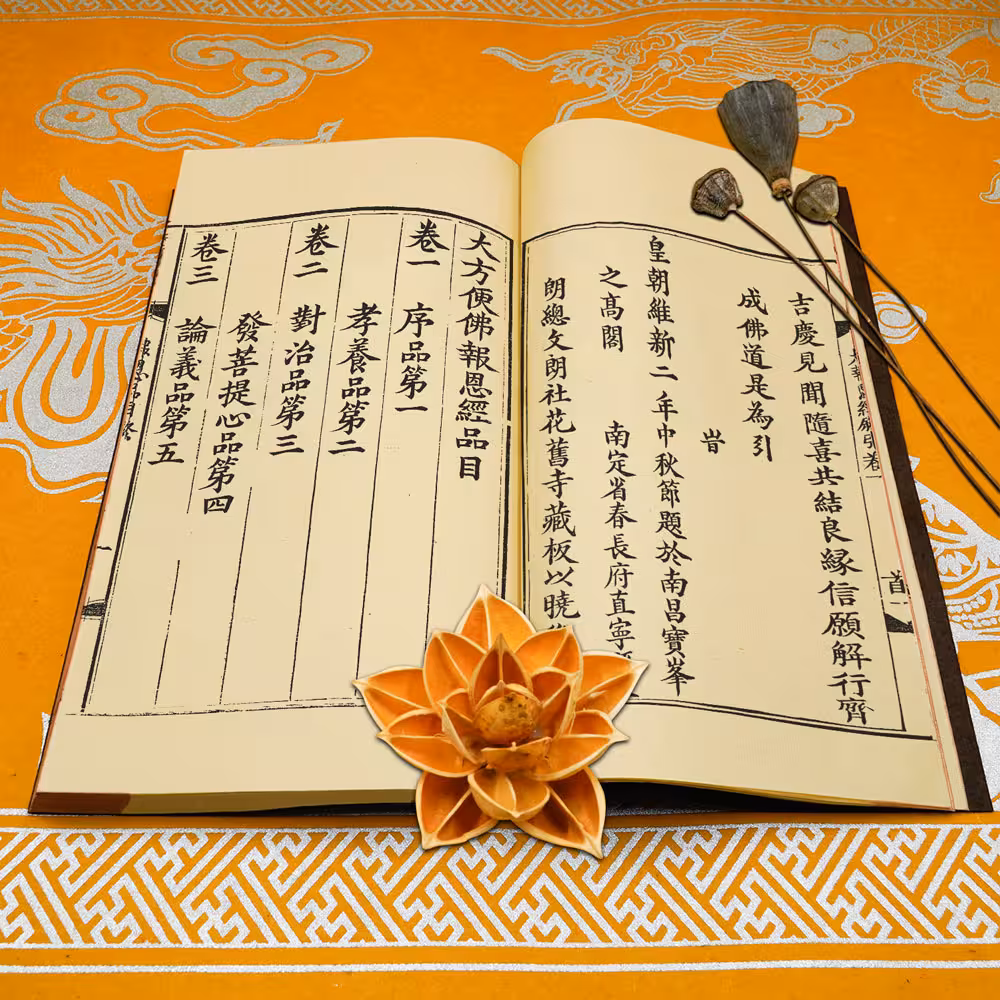 首
吉慶見聞隨喜共結良縁信願解行齊
成佛道是為引
旹
皇朝維新二年中秋節題於南昌寶峯
之髙閣 南定省春長府直寧
朗總文朗社花舊寺藏板以曉
大方便佛報恩經品目
卷一 序品第一
孝養品第二
卷二 對治品第三
發菩提心品第四
卷三 論義品第五